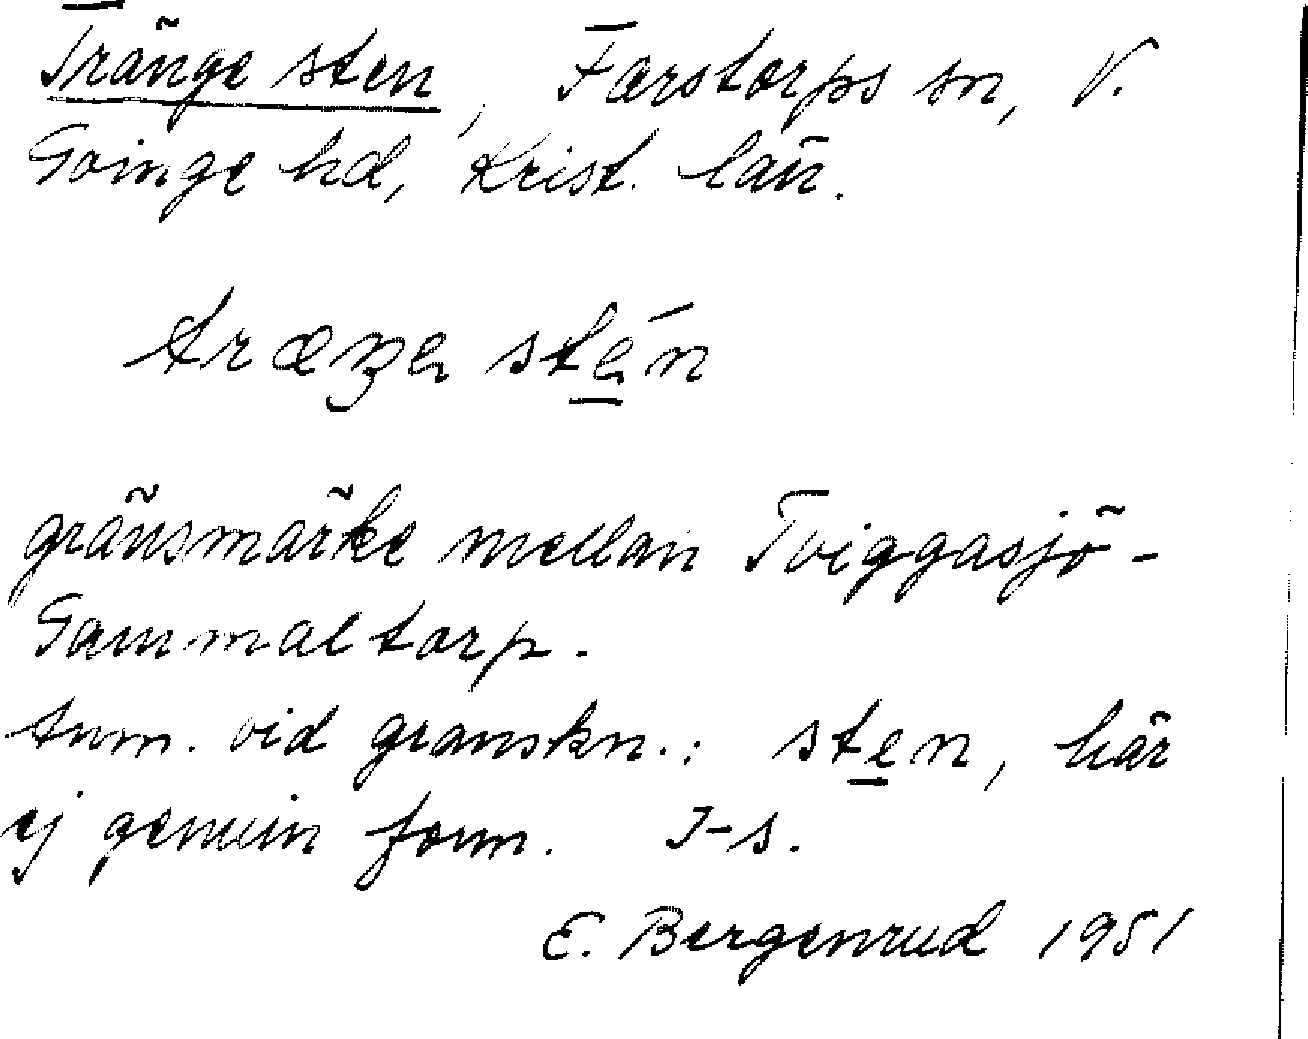 Tränge sten, Farstorps sn, V.
Göinge hd, Krist. län.
træŋɘ stén
gränsmärke mellan Tviggasjö-
Gammaltorp.
Anm. vid granskn.: sten, här
ej genuin form. I-s.
E. Bergenrud 1951